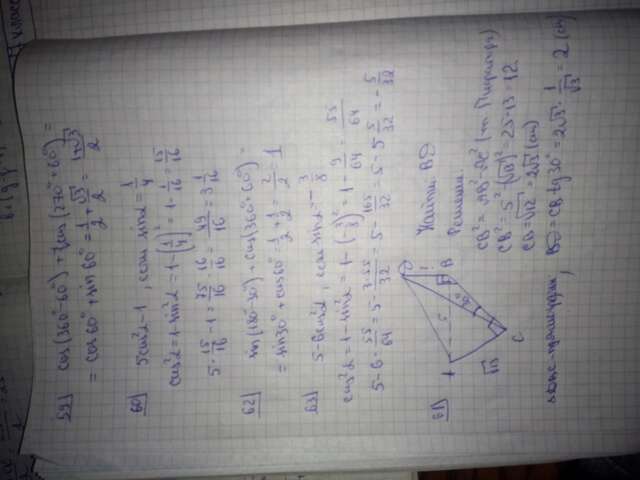 59) cos(360°-60°) + cos(270°+60°) =
= cos60° + sin60° = 1/2 + √3/2 = 1+√3/2
60) 5cos²α-1, если sinα = 1/4
cos²α = 1-sin²α = 1-(1/4)² = 1-1/16 = 15/16
5·15/16-1 = 75/16 - 16/16 = 49/16 = 3 1/16
62) sin(180°-30°) + cos(360°+60°) =
= sin30° + cos60° = 1/2 + 1/2 = 2/2 = 1
63) 5-6cos²α, если sinα = -3/8
cos²α = 1-sin²α = 1-(3/8)² = 1-9/64 = 55/64
5-6·55/64 = 5-3·55/32 = 5-165/32 = 5-5 5/32 = -5/32
D
A 5 B
√13
C
Найти BD
Решение
CB² = AB²-AC² (т. Пифагора)
CB² = 5²-(√13)² = 25-13 = 12
CB = √12 = 2√3 (см)
BD = CB·tg30° = 2√3·1/√3 = 2 (см)